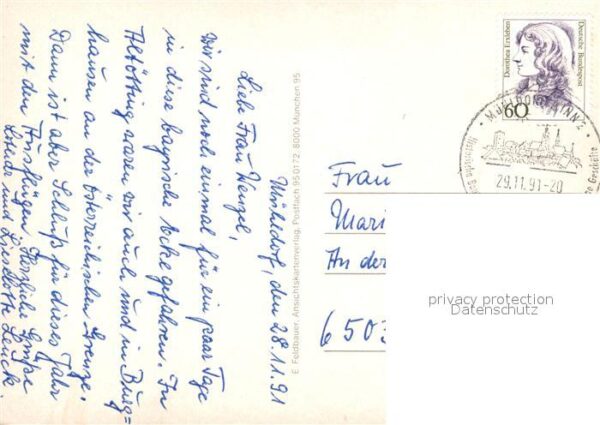 Mühldorf, den 28.11.91
Liebe Frau Wenzel,
wir sind noch einmal für ein paar Tage
in diese bayrische Ecke gefahren. In
Altötting waren wir auch und in Burg=
hausen an der österreichischen Grenze.
Dann ist aber Schluß für dieses Jahr
mit den Ausflügen. Herzliche Grüße
und Lieselotte
E. Feldbauer, Ansichtskartenverlag, Postfach 950172, 8000 München 95
Dorothea Erxleben
Deutsche Bundespost
60
MÜHLDORF A. INN 2
29.11.91-20
Frau
Mari
An der
6503
privacy protection
Datenschutz